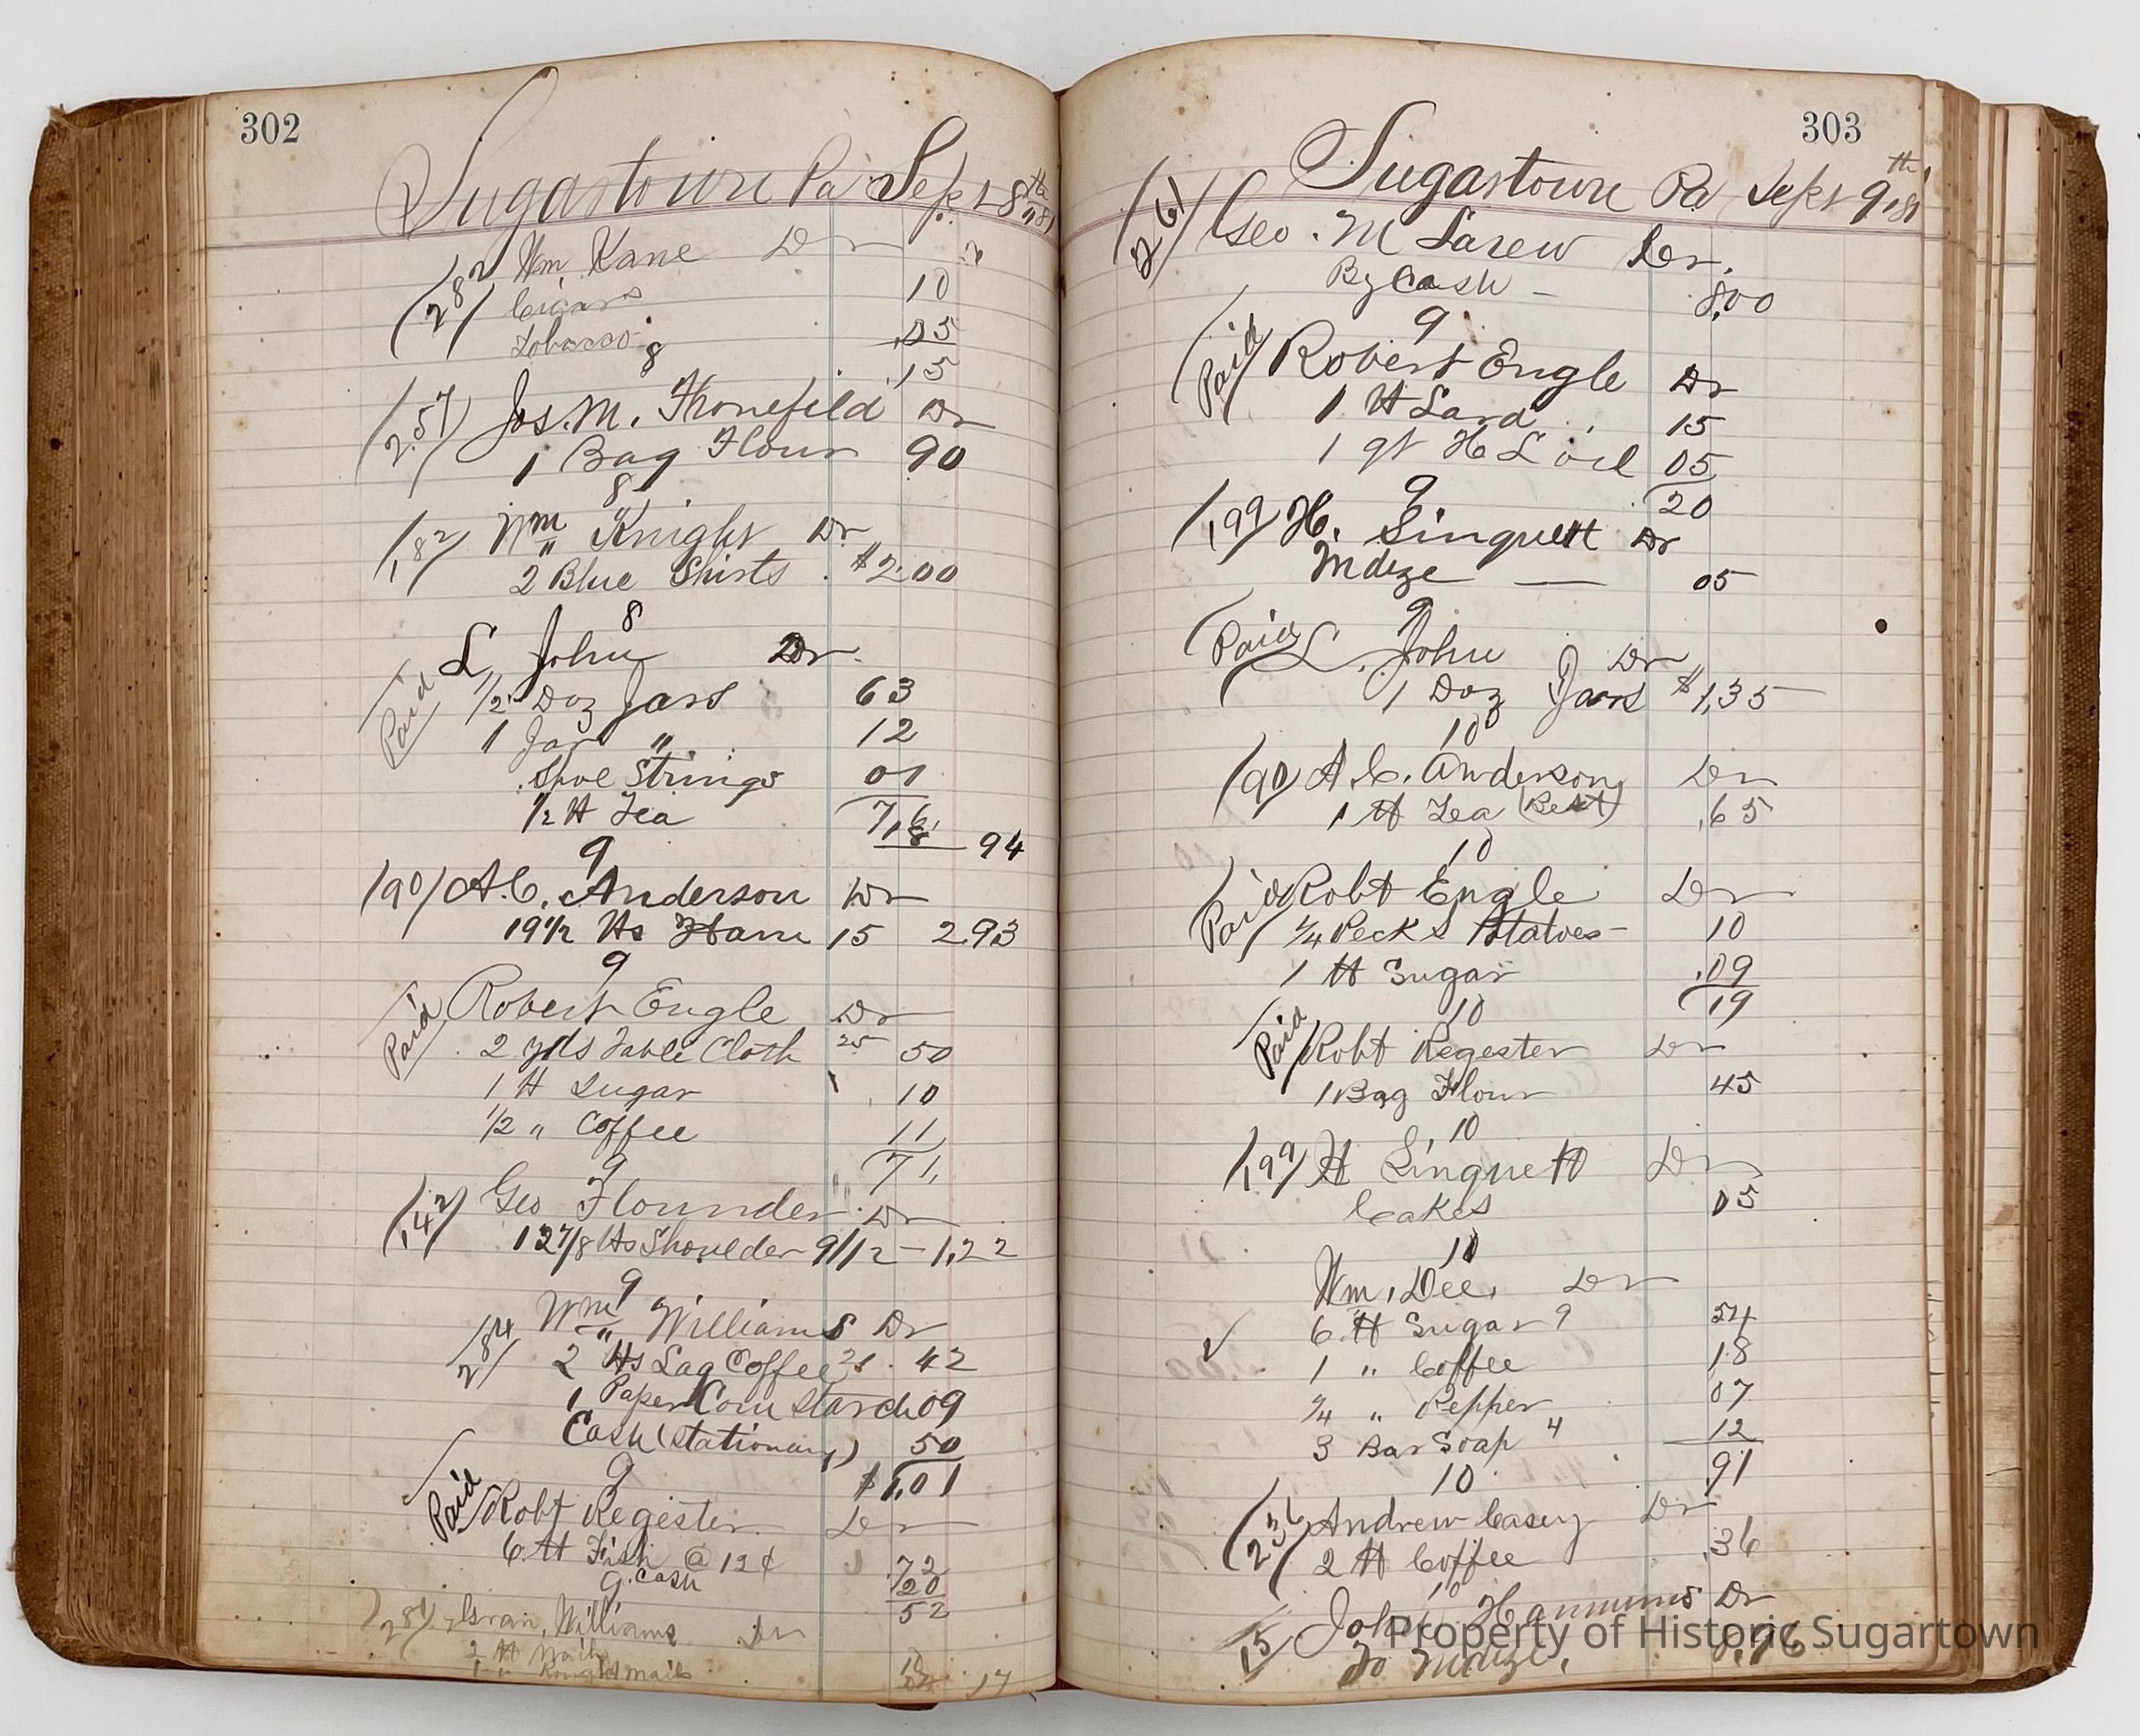 302
Sugartown Pa Sept 8th "81
(282) Wm Kane Dr
Cigars 10
Tobacco .05
8 .15
(257) Jos. M. Thonefild Dr
1 Bag Flour 90
8
(182) Wm Knight Dr
2 Blue Shirts $2.00
8
L, John Dr.
Paid 1/2 Doz Jars 63
1 Jar " 12
Shoe Strings 01
76
1/2 lb Tea 18 94
9
(90) A.C. Anderson Dr
19 1/2 lbs Ham 15 2.93
9
Paid Robert Engle Dr
2 yds Table Cloth 25 50
1 lb Sugar 10
1/2 " Coffee 11
9 71
(142) Geo Flounder Dr
12 7/8 lbs Shoulder 9 1/2 - 1,22
9
284 Wm Williams Dr
2 lbs Lag Coffee 21 42
1 Paper Corn Starch 09
Cash (Stationary) 50
9 $1,01
Paid Robt Regester Dr
6 lb Fish @ 12¢ .72
Cash 20
9 52
(281) Williams Dr
2 lb Nails
1 " Nails 17
303
Sugartown Pa Sept 9th, 81
(261) Geo. M Larew Dr.
By Cash - 8,00
9
Paid Robert Engle Dr
1 lb Lard 15
1 qt H L oil 05
9 20
(199) H. Linquett Dr
Mdze — 05
9
Paid L. John Dr
1 Doz Jars $1,35
10
(90) A.C. Anderson Dr
1 lb Tea (Best) .65
10
Paid Robt Engle Dr
1/4 Pecks Potatoes - 10
1 lb Sugar .09
10 19
Paid Robt Regester Dr
1 Bag Flour 45
10
(199) H Linquett Dr
Cakes 05
10
Wm. Dee, Dr
6 lb Sugar 9 54
1 " Coffee 18
1/4 " Pepper 07
3 Bar Soap 4 12
10 .91
(236) Andrew Casey Dr
2 lb Coffee .36
10
15 John Hannums Dr
To Mdze, .16
Property of Historic Sugartown